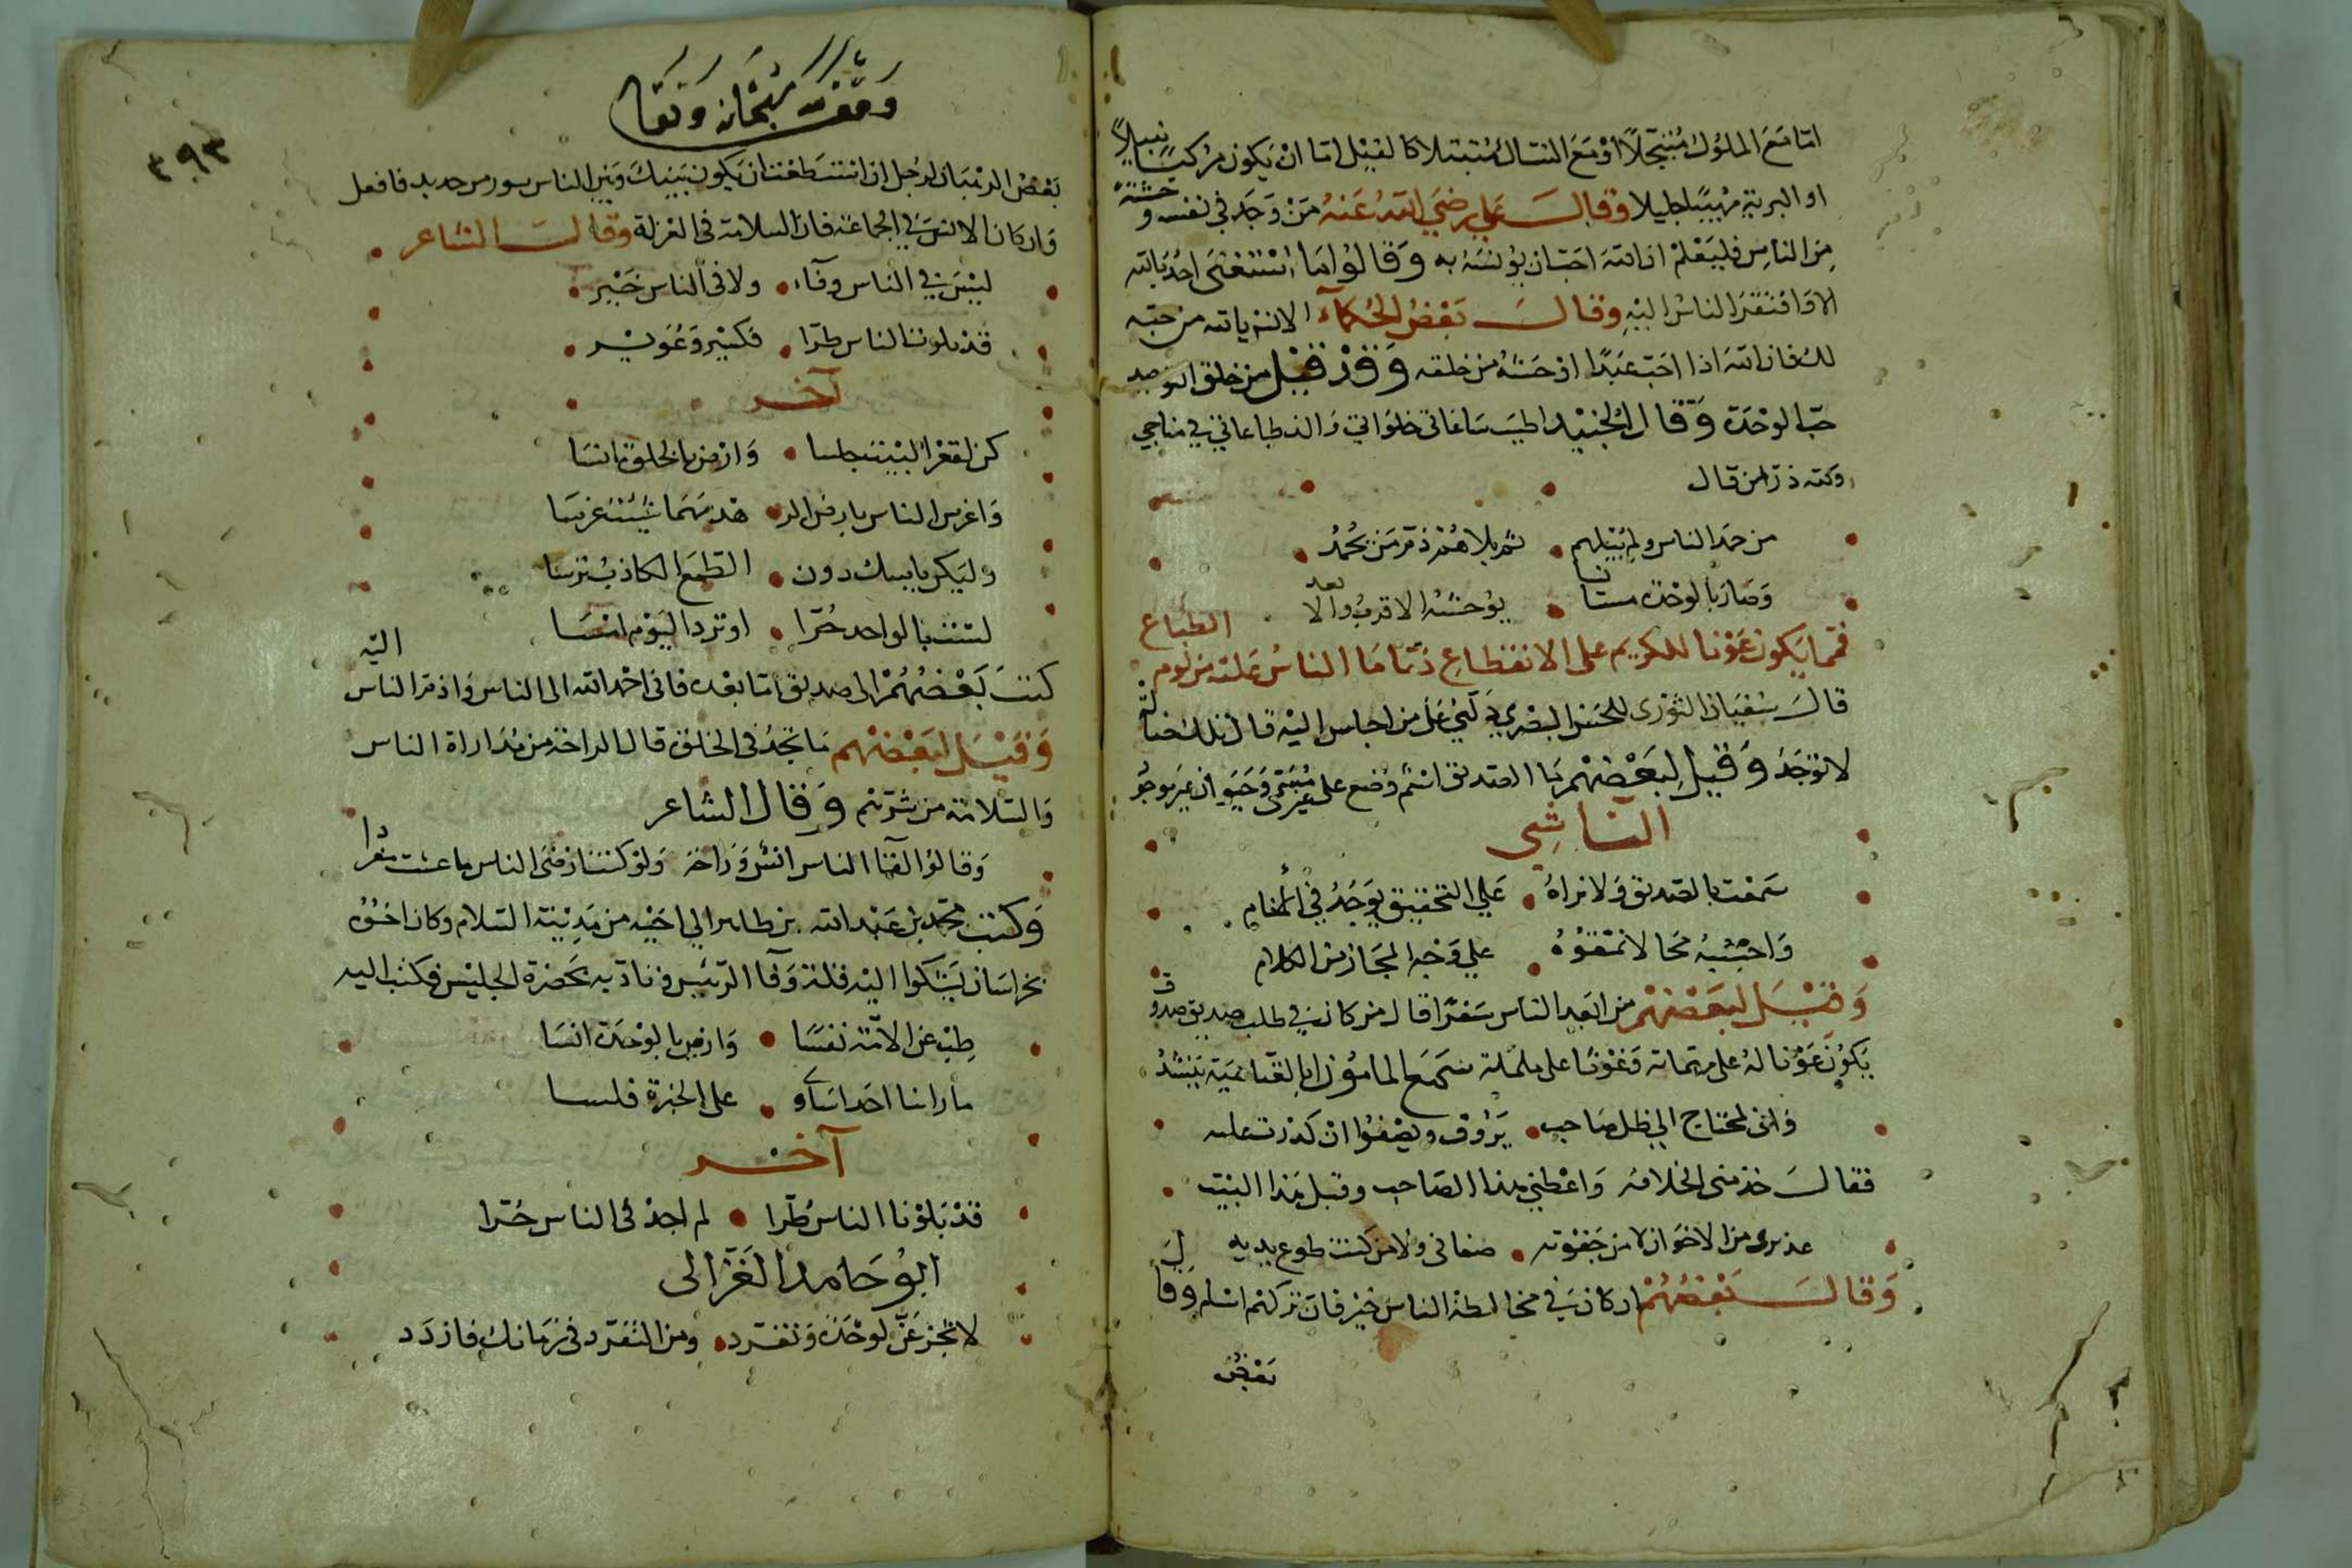 اما مع الملوك مبجلا او مع النساك متبتلا كالفيل اما ان يكون مركبا نبيلا
او البرية مهيبا جليلا وقال علي رضي الله عنه من وجد في نفسه وحشة
من الناس فليعلم ان الله احب ان يؤنسه به وقالوا ما استغنى احد بالله
الا وافتقر الناس اليه وقال بعض الحكماء الانس بالله من حبه
لك فان الله اذا احب عبدا اوحشه من خلقه وقد قيل من خلق التوحيد
حب الوحدة وقال الجنيد اطيب ساعاتي خلواتي والذ طاعاتي في مناجاتي
ولله در من قال
من حمد الناس ولم يبلهم ثم بلاهم ذم من يحمد
وصار بالوحدة مستانسا يوحشه الاقرب والابعد
فمما يكون عونا للكريم على الانقطاع ذما ما الناس عليه من لوم الطباع
قال سفيان الثوري للحسن البصري دلني على من اجلس اليه قال تلك ضالة
لا توجد وقيل لبعضهم ما الصديق اسم وضع على غير مسمى وحيوان غير موجود
الناشي
سمعت بالصديق ولا نراه علي التحقيق يوجد في الانام
واحسبه محالا نمقوه علي وجه المجاز من الكلام
وقيل لبعضهم من ابعد الناس سفرا قال من كان في طلب صديق صدوق
يكون عونا له على مهماته وغوثا على ملماته سمع المامون ابا العتاهية ينشد
واني لمحتاج الي ظل صاحب يروق ويصفوا ان كدرت عليه
فقال خذ مني الخلافة واعطني هذا الصاحب وقبل هذا البيت
عذيري من الاخوان لا من جفوته صفاني ولا من كنت طوع يديه
وقال بعضهم ان كان في مخالطة الناس خير فان تركهم اسلم وقال
بعض
وقف لله سبحانه وتعالى
٣٩٣
بعض الرهبان لرجل ان استطعت ان يكون بينك وبين الناس سور من حديد فافعل
وان كان الانس في الجماعة فان السلامة في العزلة وقال الشاعر
ليس في الناس وفاء ولا في الناس خير
قد بلونا الناس طرا فكسير وعوير
آخر
كن لقعر البيت جلسا وارض بالخلوة انسا
واغرس الناس بارض الز هد مهما شئت غرسا
وليكن ياسك دون الطمع الكاذب ترسا
لست بالواحد حرا او ترد اليوم امسا
كتب بعضهم الى صديق اما بعد فاني احمد الله الى الناس واذم الناس اليه
وقيل لبعضهم ما تجد في الخلوة قال الراحة من مداراة الناس
والسلامة من شرهم وقال الشاعر
وقالوا لقا الناس انس وراحة ولو كنت ارضى الناس ما عشت مفردا
وكتب محمد بن عبد الله بن طاهر الي اخيه من مدينة السلام وكان اخوه
بخراسان يشكوا اليه قلة وفا الرئيس وناد به بحضرة الجليس فكتب اليه
طب عن الامة نفسا وارض بالوحدة انسا
ما راينا احدا يساوي على الخبرة فلسا
آخر
قد بلونا الناس طرا لم اجد في الناس حرا
ابو حامد الغزالي
لا تجزعن لوحدة وتفرد ومن التفرد في زمانك فازدد